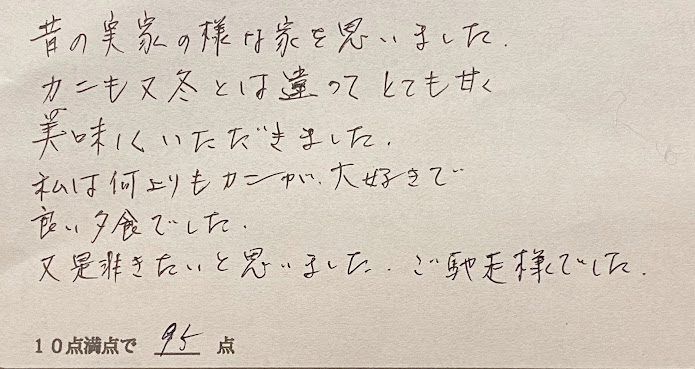 昔の実家の様な家を思いました.
カニも又冬とは違ってとても甘く
美味しくいただきました.
私は何よりもカニが、大好きで
良い夕食でした.
又是非きたいと思いました. ご馳走様でした.
10点満点で 95 点